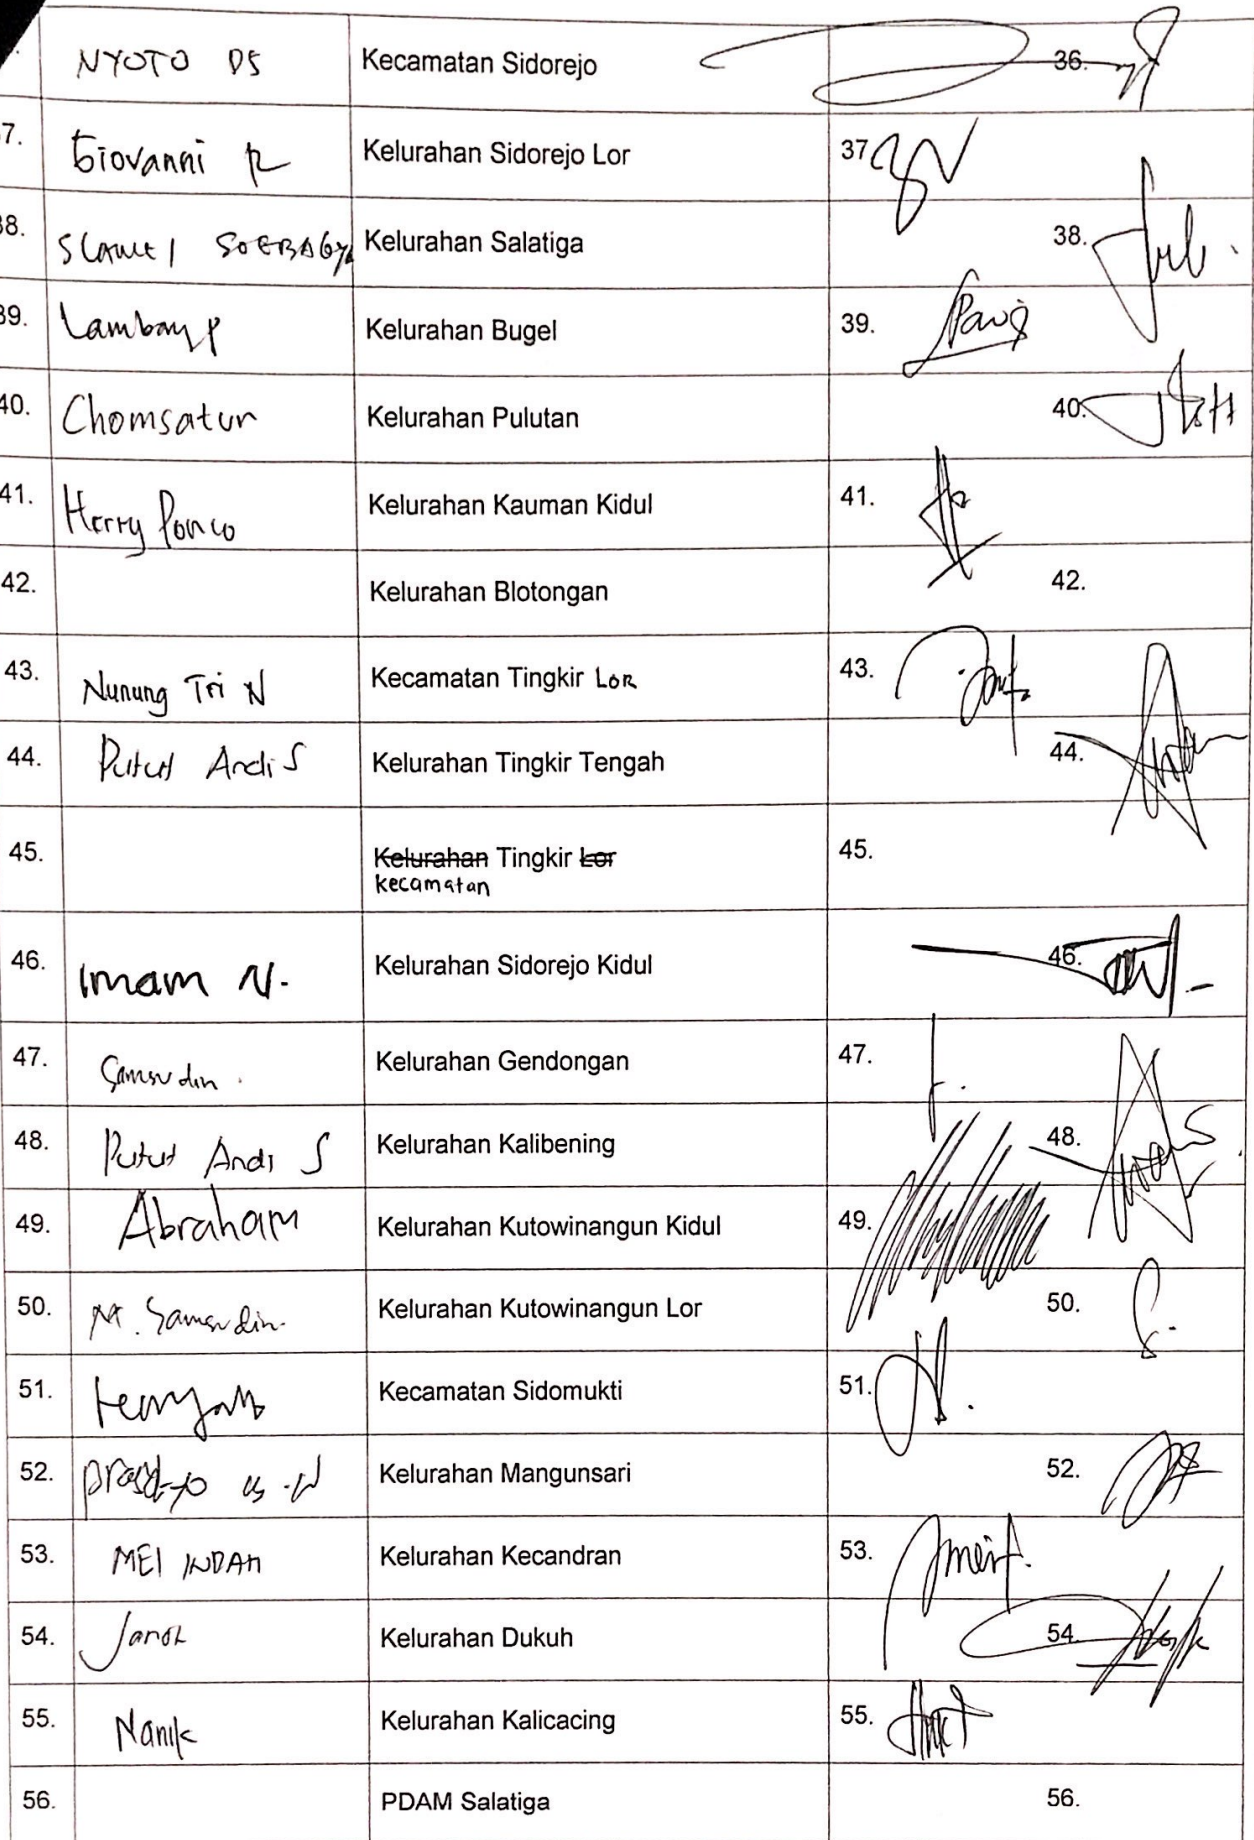 NYOTO DS Kecamatan Sidorejo 36.
7. Giovanni R Kelurahan Sidorejo Lor 37
38. SLAMET SOEBAGYO Kelurahan Salatiga 38.
39. Lambang P Kelurahan Bugel 39.
40. Chomsatun Kelurahan Pulutan 40.
41. Herry Ponco Kelurahan Kauman Kidul 41.
42. Kelurahan Blotongan 42.
43. Nunung Tri N Kecamatan Tingkir LOR 43.
44. Putut Andi S Kelurahan Tingkir Tengah 44.
45. Kelurahan Tingkir Lor 45.
kecamatan
46. Imam N. Kelurahan Sidorejo Kidul 46.
47. Samsudin. Kelurahan Gendongan 47.
48. Putut Andi S Kelurahan Kalibening 48.
49. Abraham Kelurahan Kutowinangun Kidul 49.
50. M. Samsudin. Kelurahan Kutowinangun Lor 50.
51. Kecamatan Sidomukti 51.
52. Kelurahan Mangunsari 52.
53. MEI INDAH Kelurahan Kecandran 53.
54. Kelurahan Dukuh 54.
55. Nanik Kelurahan Kalicacing 55.
56. PDAM Salatiga 56.